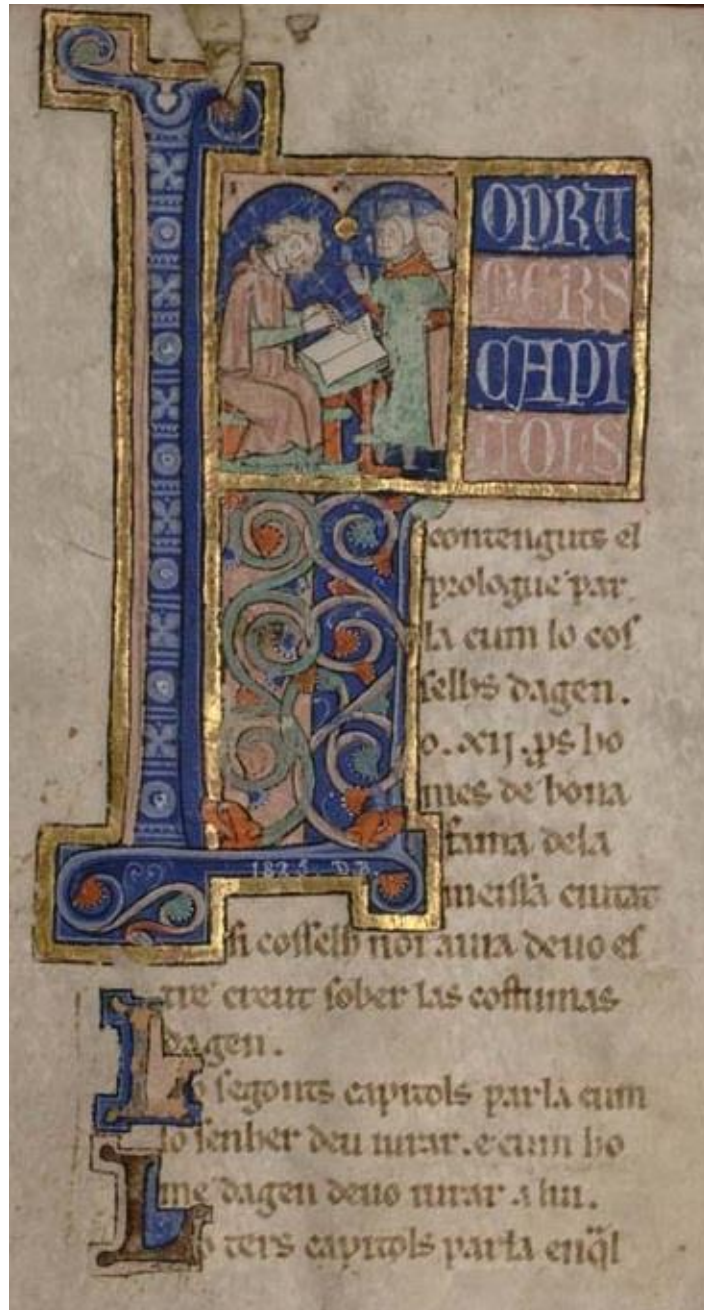 L
OPRU
MERS
CAPI
TOLS
contenguts el
prologue par
la cum lo cos
selhs dagen.
o. xij. ps ho
mes de bona
fama dela
1825. D.B.
meissa ciutat
si cosselh noi auia deuo es
tre creut sober las costumas
dagen.
Lo segonts capitols parla cum
lo senher deu iurar. e cum ho
me dagen deuo iurar a lui.
Lo ters capitols parla en ql